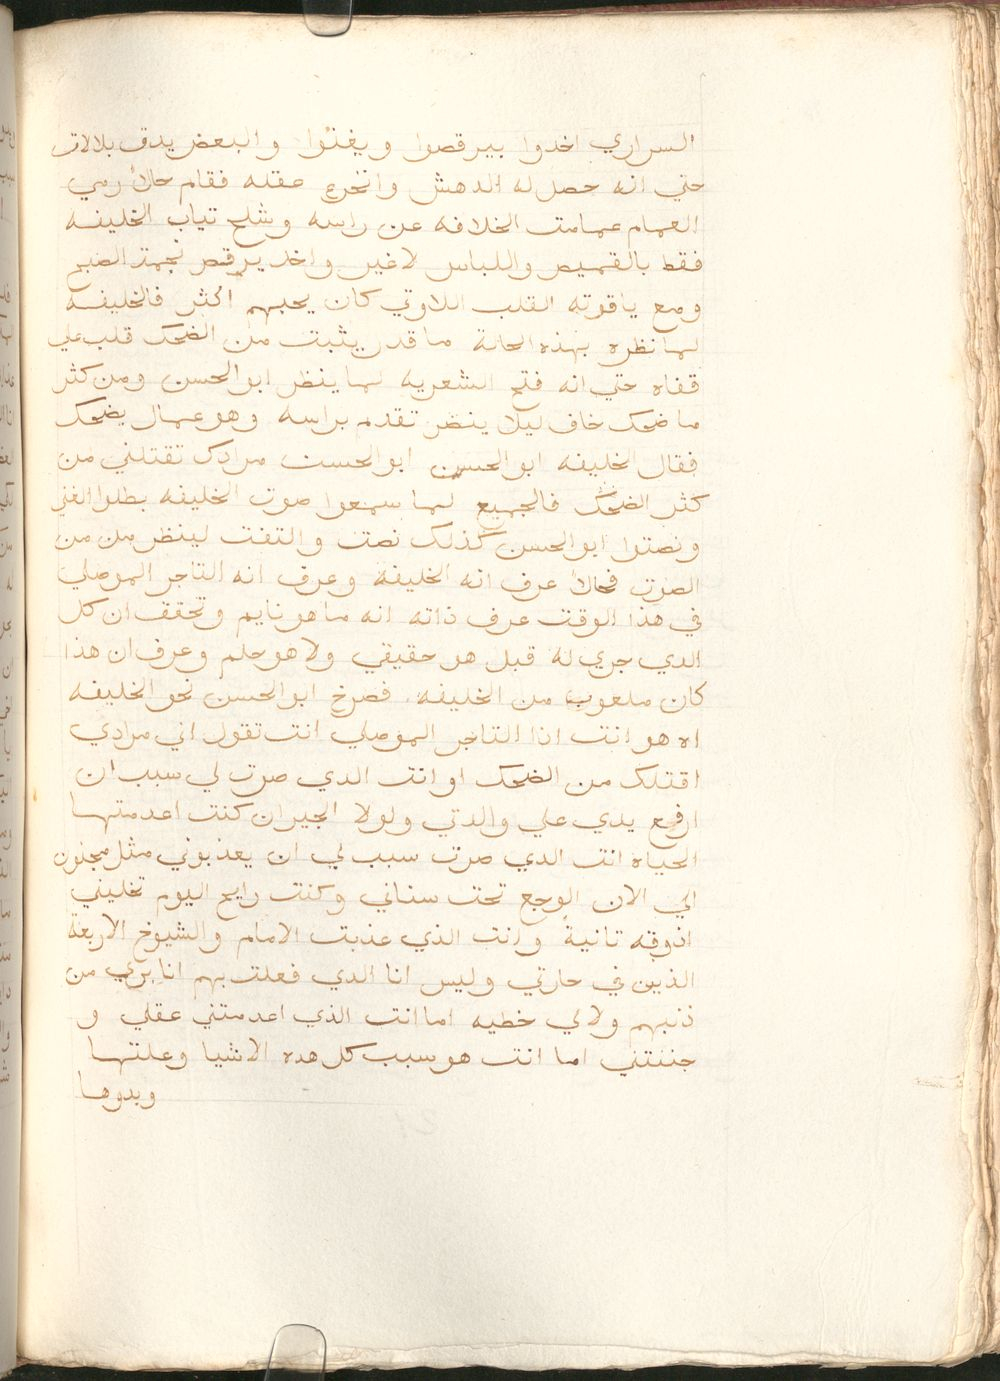 السراري اخدوا بيرقصوا ويغنوا والبعض يدق بلالات
حتي انه حصل له الدهش وانخرع عقله فقام حالاً رمي
العمام عمامت الخلافه عن راسه وشلح تياب الخليفه
فقط بالقميص واللباس لاغير واخد يرقص نجمة الصبح
ومع ياقوته القلب اللاوتي كان يحبهم اكثر فالخليفه
لما نظره بهذه الحالة ما قدر يثبت من الضحك قلب علي
قفاه حتي انه فتح الشعريه لما ينظر ابو الحسن ومن كثر
ما ضحك خاف ليلا ينضر تقدم براسه وهو عمال يضحك
فقال الخليفه ابو الحسن ابو الحسن مرادك تقتلني من
كثر الضحك فالجميع لما سمعوا صوت الخليفه بطلوا الغني
ونصتوا ابو الحسن كذلك نصت والتفت لينظر من من
الصوت فحالاً عرف انه الخليفة وعرف انه التاجر الموصلي
في هذا الوقت عرف ذاته انه ما هو نايم وتحقق ان كل
الدي جري له قبل هو حقيقي ولا هو حلم وعرف ان هذا
كان ملعوب من الخليفه فصرخ ابو الحسن نحو الخليفه
اه هو انت اذا التاجر الموصلي انت تقول اني مرادي
اقتلك من الضحك او انت الدي صرت لي سبب ان
ارفع يدي علي والدتي ولولا الجيران كنت اعدمتها
الحياه انت الدي صرت سبب لي ان يعذبوني مثل مجنون
الي الان الوجع تحت سناني وكنت رايح اليوم تخليني
اذوقه تانيةً وانت الذي عذبت الامام والشيوخ الاربعة
الذين في حارتي وليس انا الدي فعلت بهم انا بري من
ذنبهم ولا لي خطيه اما انت الذي اعدمتني عقلي و
جننتني اما انت هو سبب كل هده الاشيا وعلتها
وبدوها